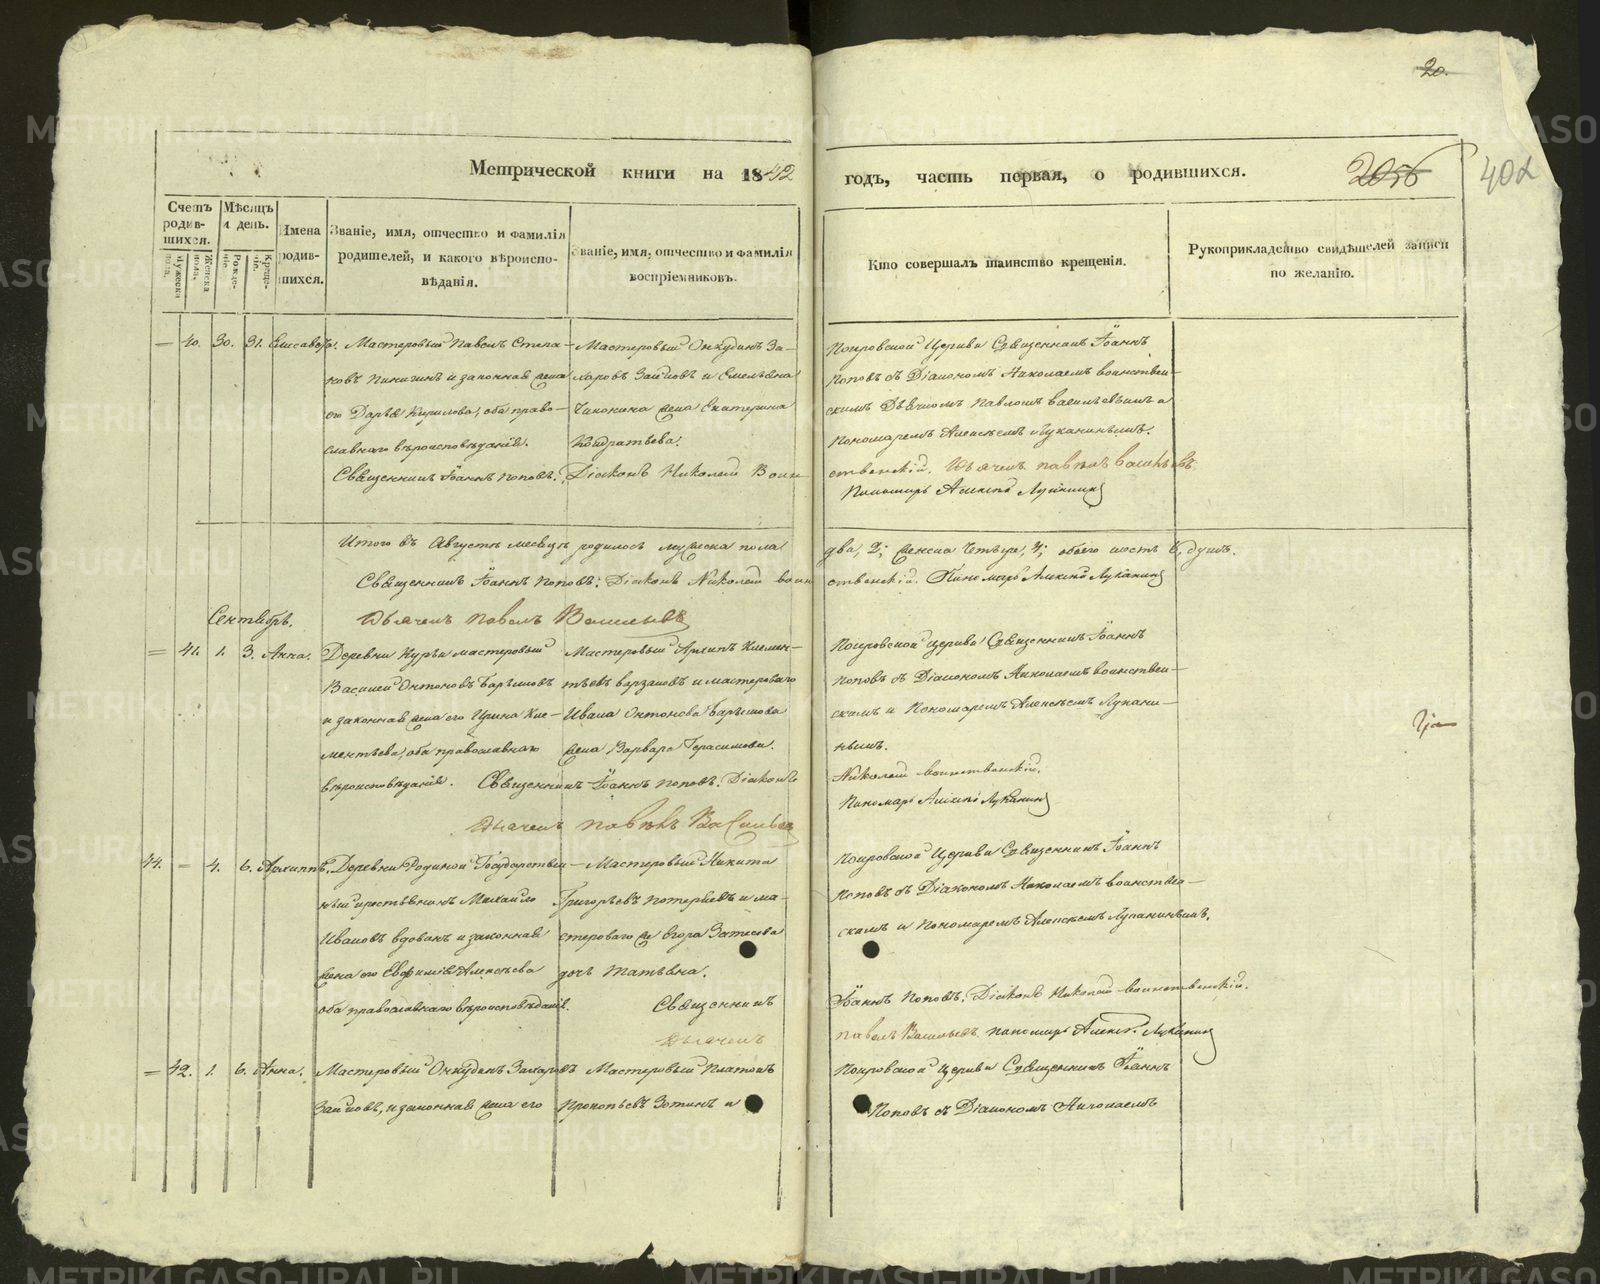 20.
Метрической книги на 1842 годъ, часть первая, о родившихся. 2056 402
Счетъ родившихся.
Мужеска пола.
Женска пола.
Мѣсяцъ и день.
Рожденіе.
Крещеніе.
Имена родившихся.
Званіе, имя, отчество и фамилія родителей, и какого вѣроисповѣданія.
Званіе, имя, отчество и фамилія воспріемниковъ.
Кто совершалъ таинство крещенія.
Рукоприкладство свидѣтелей записи по желанію.
— 40. 30. 31. Елисаветъ. Мастеровый Павелъ Степа-
новъ Пинигинъ и законная жена
его Дарья Кирилова, оба право-
славнаго вѣроисповѣданія.
Мастеровый Онкудинъ За-
харовъ Зайцовъ и Емельяна
жена Екатерина
Кондратьева.
Покровской Церкви Священникъ Іоаннъ
Поповъ съ Діакономъ Николаемъ воинствен-
скимъ Дьячкомъ Павломъ Васильевымъ и
Пономаремъ Алексѣемъ Луканинымъ.
Священникъ Іоаннъ Поповъ. Діаконъ Николай Воин-
ственскій. Дьячекъ Павелъ Васильевъ
Пономарь Алексѣй Луканинъ
Итого въ Августѣ месяцѣ родилось мужеска пола два, 2; женска четыре, 4; обоего шесть 6, душъ.
Священникъ Іоаннъ Поповъ. Діаконъ Николай воинственскій. Пономарь Алексѣй Луканинъ
Дьячекъ Павелъ Васильевъ
Сентябрь.
= 41. 1. 3. Анна. Деревни Курьи мастеровый
Василей Онтоновъ Барышовъ
и законная жена его Ирина Кле-
ментьева, оба православнаго
вѣроисповѣданія.
Мастеровый Архипъ Клемен-
тьевъ и мастероваго
Ивана Онтонова Барышова
жена Варвара Герасимова.
Покровской церкви Священникъ Іоаннъ
Поповъ съ Діакономъ Николаемъ воинствен-
скимъ и Пономаремъ Алексѣемъ Лукани-
нымъ.
Священникъ Іоаннъ Поповъ. Діаконъ
Николай воинственскій.
Дьячекъ Павелъ Васильевъ
Пономарь Алексѣй Луканинъ
44. = 4. 6. Архиппъ. Деревни Родиной Государствен-
ный крестьянинъ Михайло
Ивановъ вдовинъ и законная
жена его Евфимія Алексѣева
оба православнаго вѣроисповѣданія.
Мастеровый Никита
Григорьевъ Потеряевъ и ма-
стероваго же Егора Затѣева
дочь Татьяна.
Покровской Церкви Священникъ Іоаннъ
Поповъ съ Діакономъ Николаемъ воинствен-
скимъ и Пономаремъ Алексѣемъ Луканинымъ.
Священникъ Іоаннъ Поповъ. Діаконъ Николай воинственскій.
Дьячекъ Павелъ Васильевъ Пономарь Алексѣй Луканинъ
= 42. 1. 6. Анна. Мастеровый Онкудинъ Захаровъ
Зайцовъ, и законная жена его
Мастеровый Платонъ
Прокопьевъ Зотинъ и
Покровской церкви Священникъ Іоаннъ
Поповъ съ Діакономъ Николаемъ
METRIKI.GASO-URAL.RU